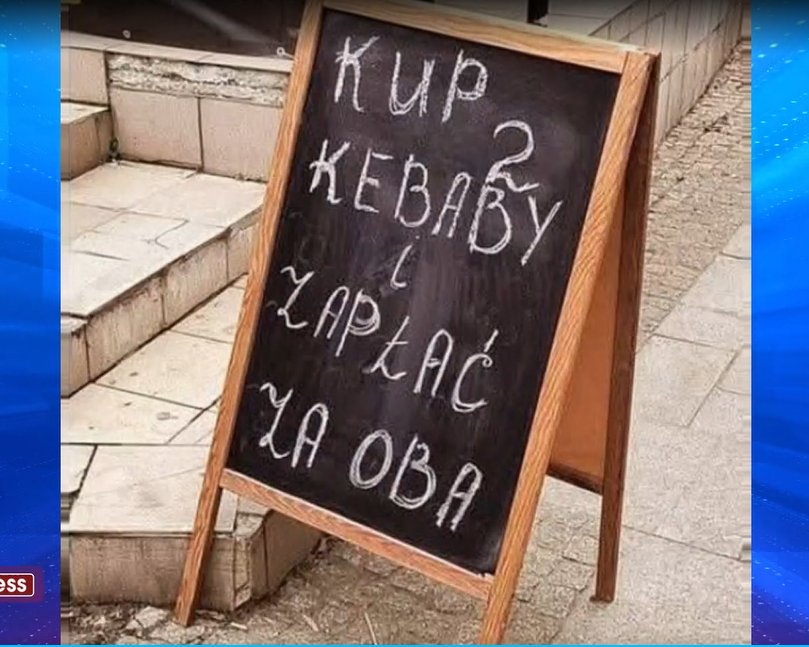 KUP
2
KEBABY
i
ZAPŁAĆ
ZA OBA
ess